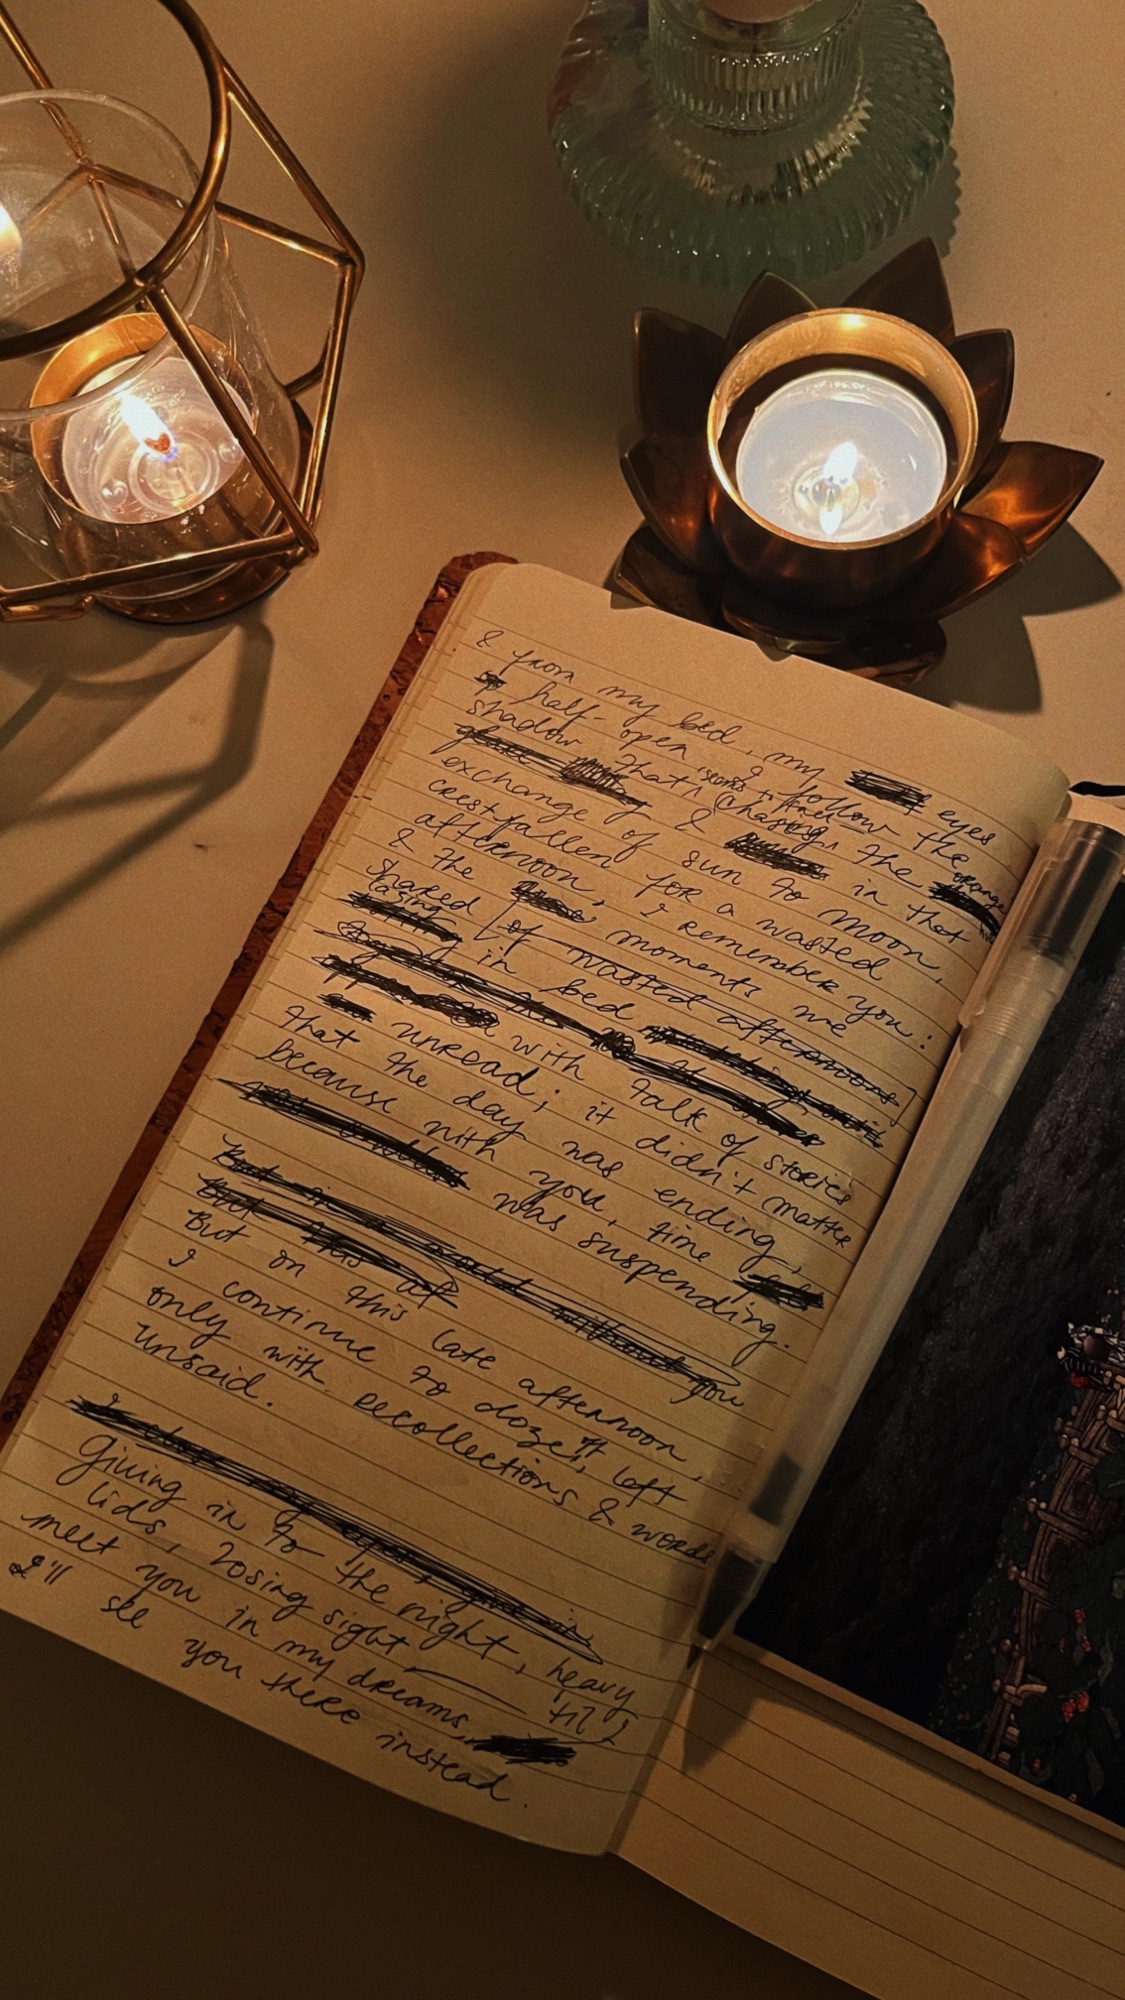 & from my bed, my eyes
half-open & follow the
shadow that seems to
exchange of sun to moon,
crestfallen for a wasted
afternoon, I remember you:
& the moments we
shared [of wasted afternoons]
in bed
with talk of stories
unread; it didn't matter
that the day was ending,
because with you, time
was suspending.
But in a world without you
But this
But on this late afternoon,
I continue to doze off, left
only with recollections & words
unsaid.
Giving in to the night, heavy
lids, losing sight — 'til I
meet you in my dreams,
I'll see you there instead.